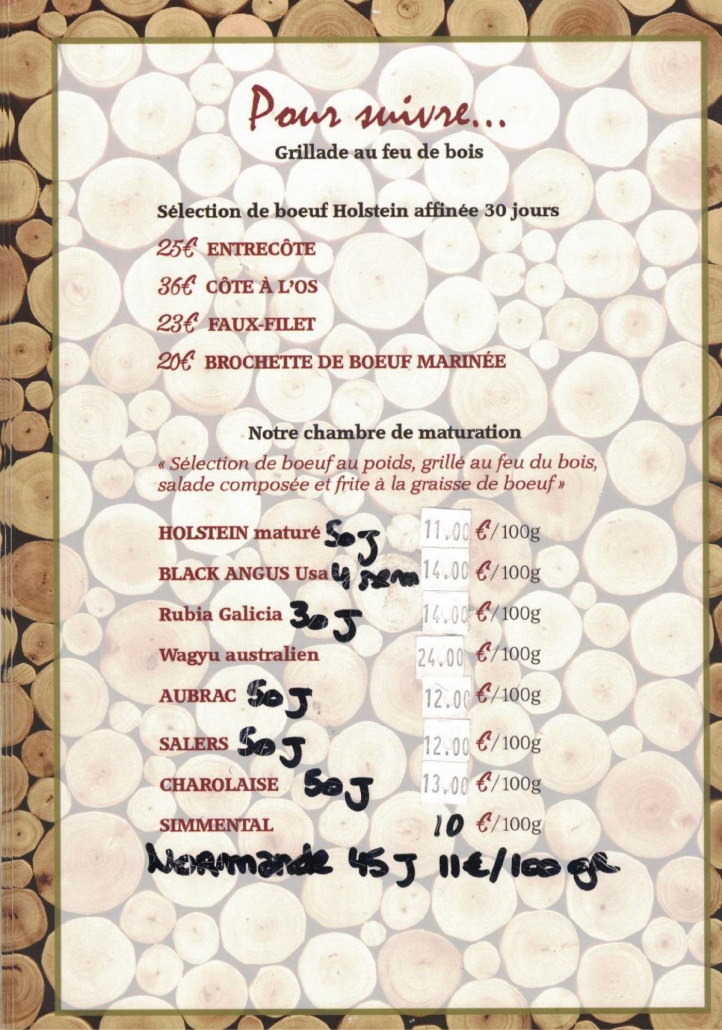 Pour suivre...
Grillade au feu de bois
Sélection de boeuf Holstein affinée 30 jours
25€ ENTRECÔTE
36€ CÔTE À L'OS
23€ FAUX-FILET
20€ BROCHETTE DE BOEUF MARINÉE
Notre chambre de maturation
« Sélection de boeuf au poids, grillé au feu du bois,
salade composée et frite à la graisse de boeuf »
HOLSTEIN maturé 50 J 11.00 €/100g
BLACK ANGUS Usa 4 sem 14.00 €/100g
Rubia Galicia 30 J 14.00 €/100g
Wagyu australien 24.00 €/100g
AUBRAC 50 J 12.00 €/100g
SALERS 50 J 12.00 €/100g
CHAROLAISE 50 J 13.00 €/100g
SIMMENTAL 10 €/100g
Normande 45 J 11€/100 gr